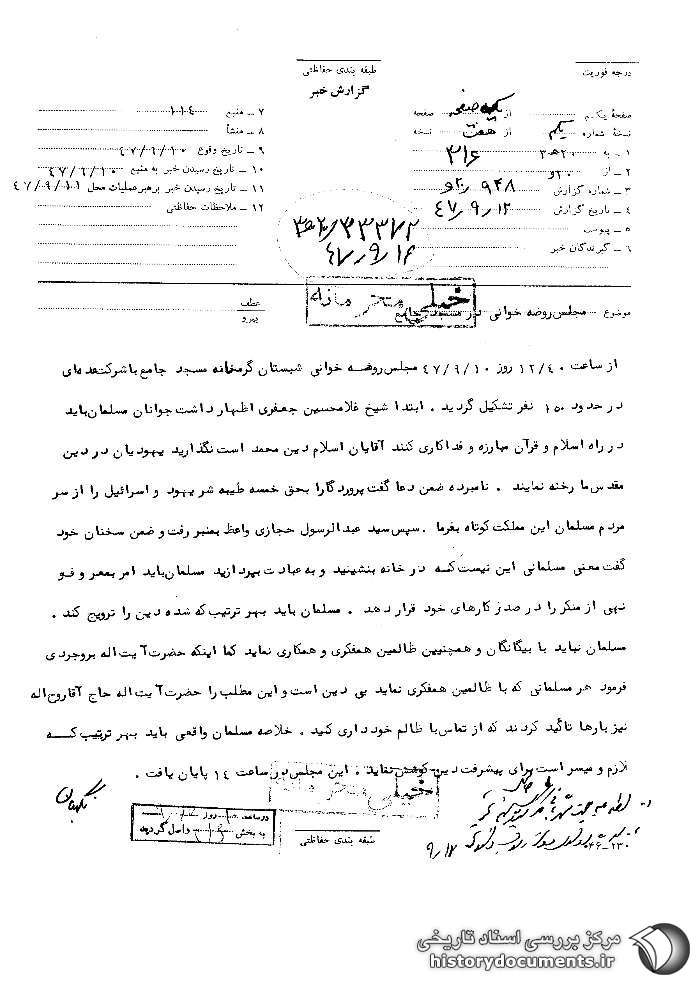 درجه فوریت
طبقه بندی حفاظتی
گزارش خبر
صفحهٔ یکم از یک صفحه
نسخهٔ شماره یکم از هفت نسخه
۱ ــ به ۳۱۶
۲ ــ از ۲۰ ه‍
۳ ــ شماره گزارش
۴ ــ تاریخ گزارش ۴۷/۹/۱۲
۵ ــ پیوست
۶ ــ گیرندگان خبر
۷ ــ منبع ۱۱۰۴
۸ ــ منشأ
۹ ــ تاریخ وقوع ۴۷/۹/۱۰
۱۰ ــ تاریخ رسیدن خبر به منبع ۴۷/۹/۱۰
۱۱ ــ تاریخ رسیدن خبر برهبر عملیات محل
۱۲ ــ ملاحظات حفاظتی
۴۷/۹/۱۶
خیلی محرمانه
موضوع ــ مجلس روضه خوانی در مسجد جامع
عطف
پیرو
از ساعت ۱۲/۴۰ روز ۴۷/۹/۱۰ مجلس روضه خوانی شبستان گرمخانه مسجد جامع با شرکت عده‌ای
در حدود ۱۵۰ نفر تشکیل گردید . ابتدا شیخ غلامحسین جعفری اظهار داشت جوانان مسلمان باید
در راه اسلام و قرآن مبارزه و فداکاری کنند آقایان اسلام دین محمد است نگذارید یهودیان در دین
مقدس ما رخنه نمایند . نامبرده ضمن دعا گفت پروردگارا بحق خمسه طیبه شر یهود و اسرائیل را از سر
مردم مسلمان این مملکت کوتاه بفرما . سپس سید عبدالرسول حجازی واعظ بمنبر رفت و ضمن سخنان خود
گفت معنی مسلمانی این نیست که در خانه بنشینید و به عبادت بپردازید مسلمان باید امر بمعروف و
نهی از منکر را در صدر کارهای خود قرار دهد . مسلمان باید بهر ترتیب که شده دین را ترویج کند .
مسلمان نباید با بیگانگان و همچنین ظالمین همفکری و همکاری نماید کما اینکه حضرت آیت اله بروجردی
فرمود هر مسلمانی که با ظالمین همفکری نماید بی دین است و این مطلب را حضرت آیت اله حاج آقا روح اله
نیز بارها تأکید کردند که از تماس با ظالم خود داری کنید . خلاصه مسلمان واقعی باید بهر ترتیب که
لازم و میسر است برای پیشرفت دین کوشش نماید . این مجلس در ساعت ۱۴ پایان یافت .
خیلی محرمانه
نگهبان
در ساعت روز
به بخش واصل گردید
طبقه بندی حفاظتی
۹/۱۷
مرکز بررسی اسناد تاریخی
historydocuments.ir